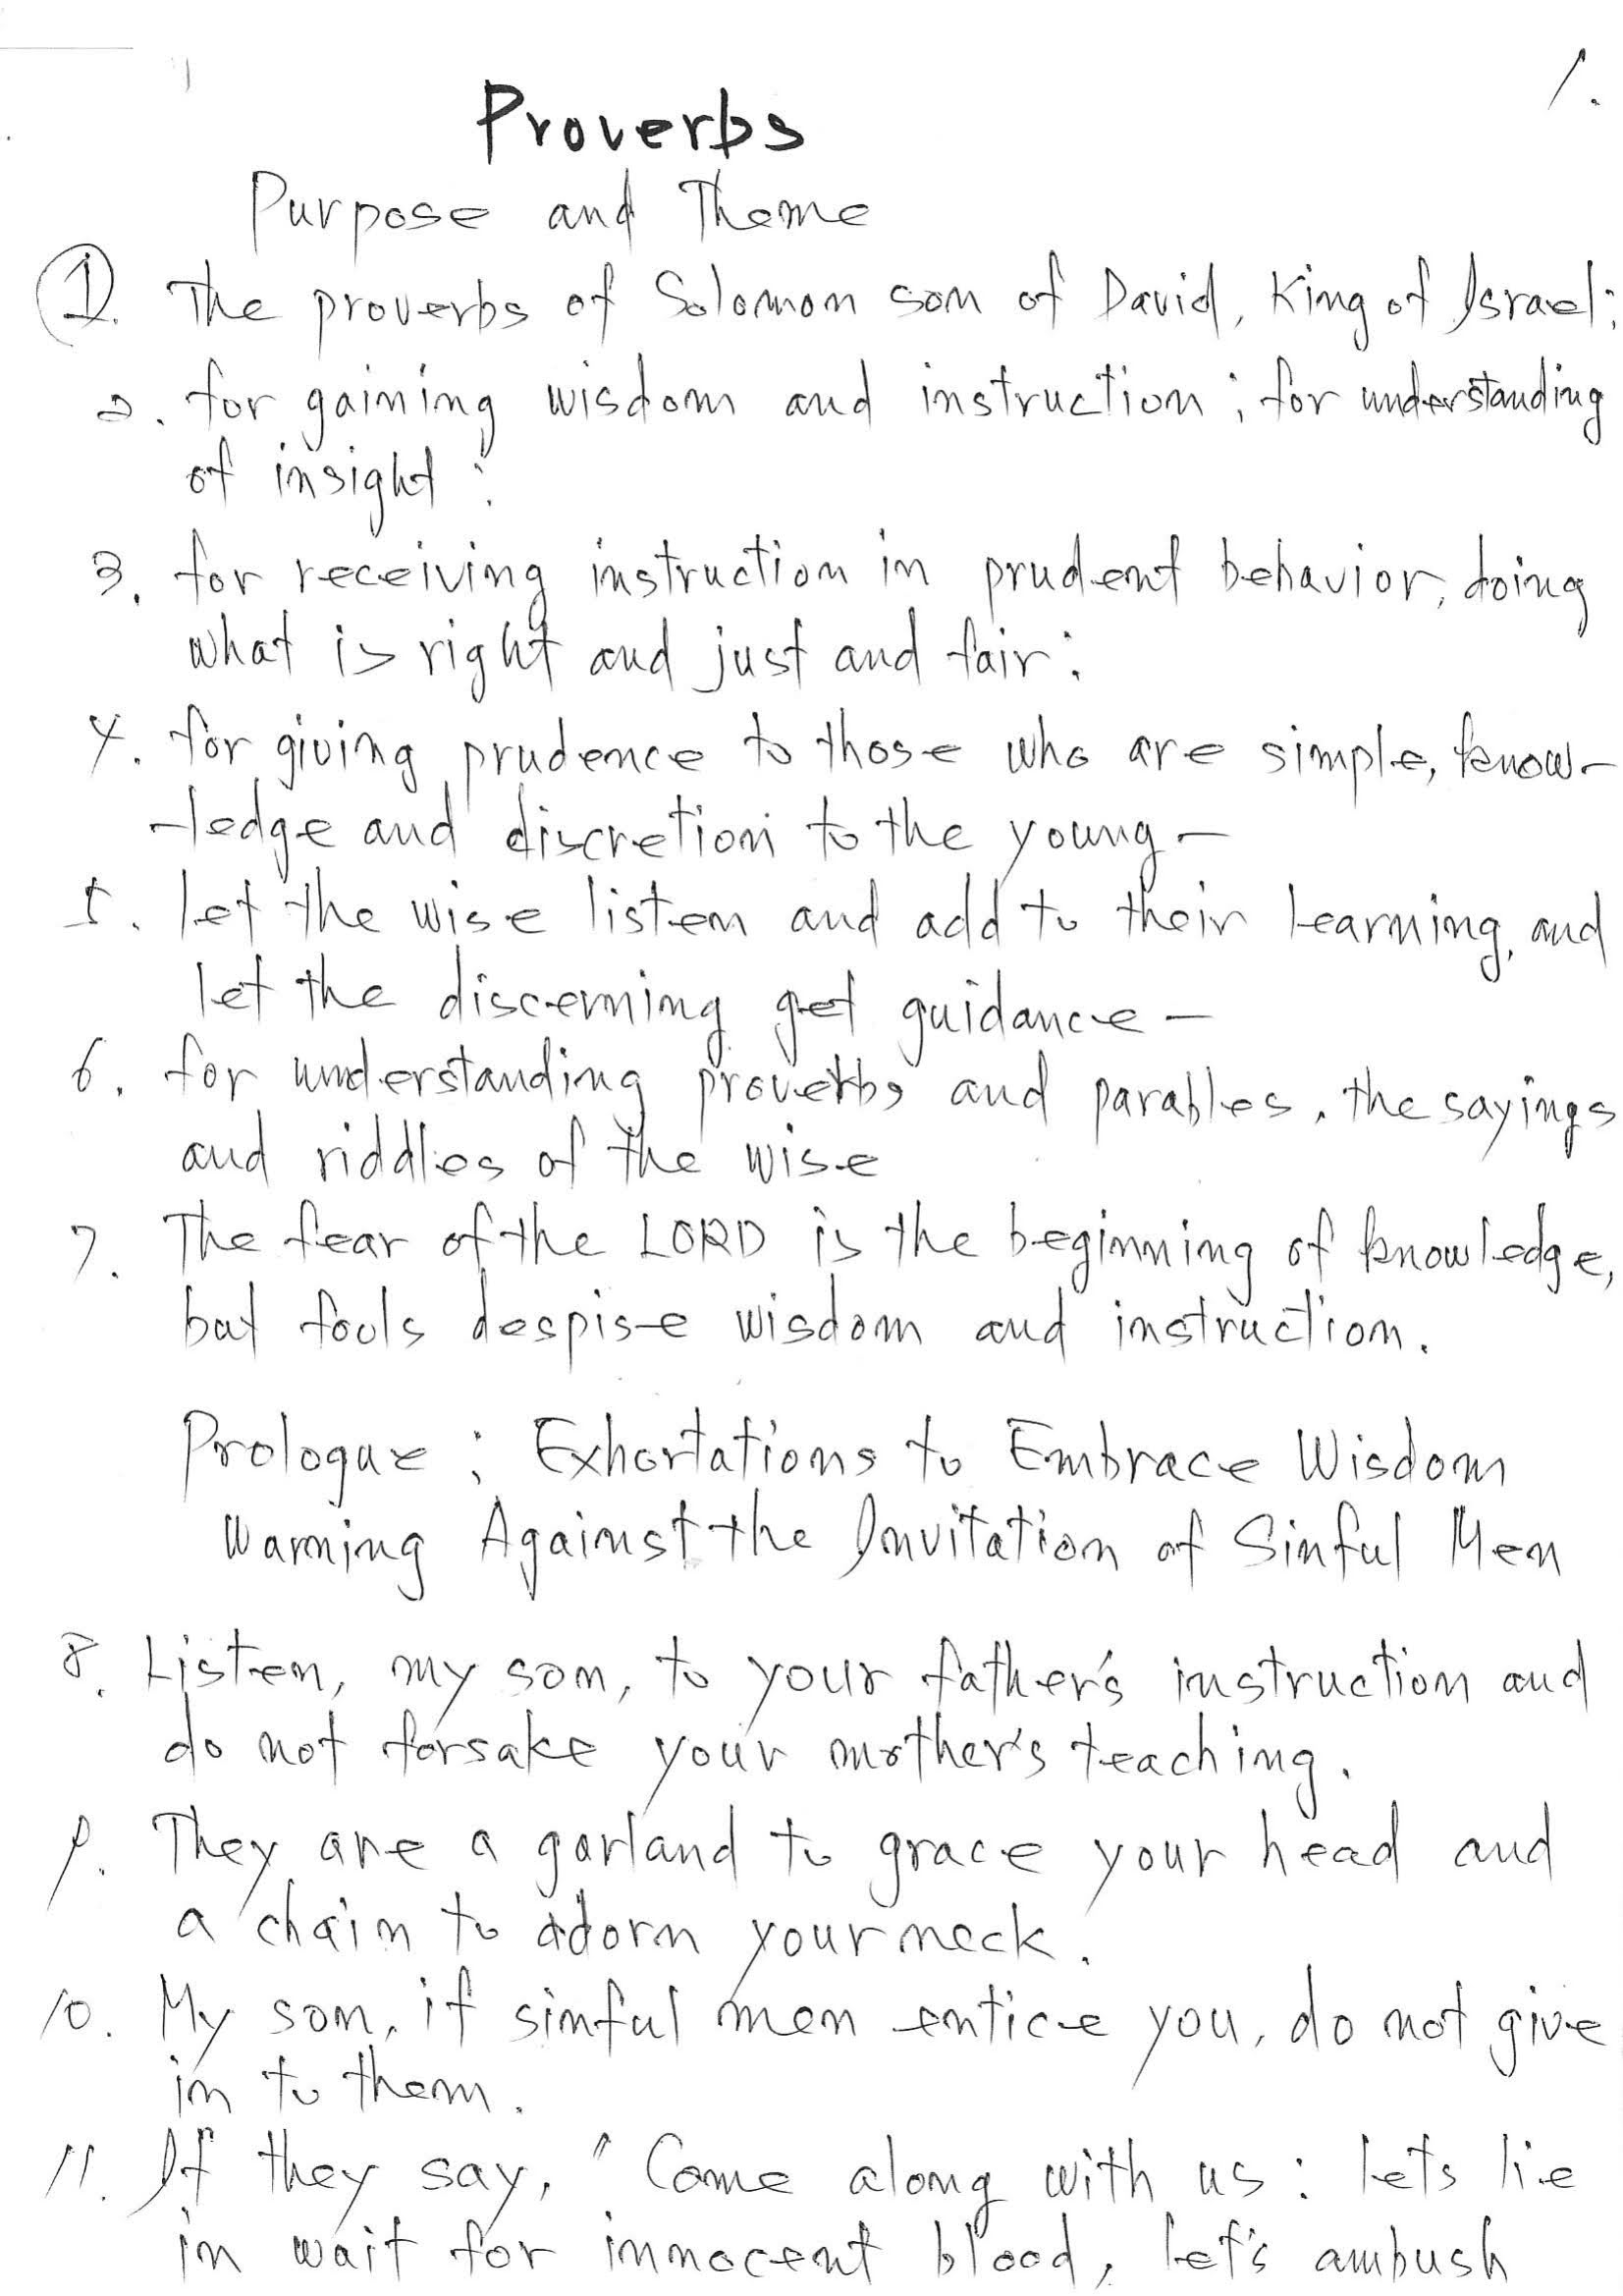 1.
Proverbs
Purpose and Theme
1. The proverbs of Solomon son of David, King of Israel:
2. for gaining wisdom and instruction; for understanding
of insight:
3. for receiving instruction in prudent behavior, doing
what is right and just and fair:
4. for giving prudence to those who are simple, know-
-ledge and discretion to the young-
5. let the wise listen and add to their learning, and
let the discerning get guidance-
6. for understanding proverbs and parables, the sayings
and riddles of the wise
7. The fear of the LORD is the beginning of knowledge,
but fools despise wisdom and instruction.
Prologue; Exhortations to Embrace Wisdom
Warning Against the Invitation of Sinful Men
8. Listen, my son, to your father's instruction and
do not forsake your mother's teaching.
9. They are a garland to grace your head and
a chain to adorn your neck.
10. My son, if sinful men entice you, do not give
in to them.
11. If they say, "Come along with us: lets lie
in wait for innocent blood, let's ambush